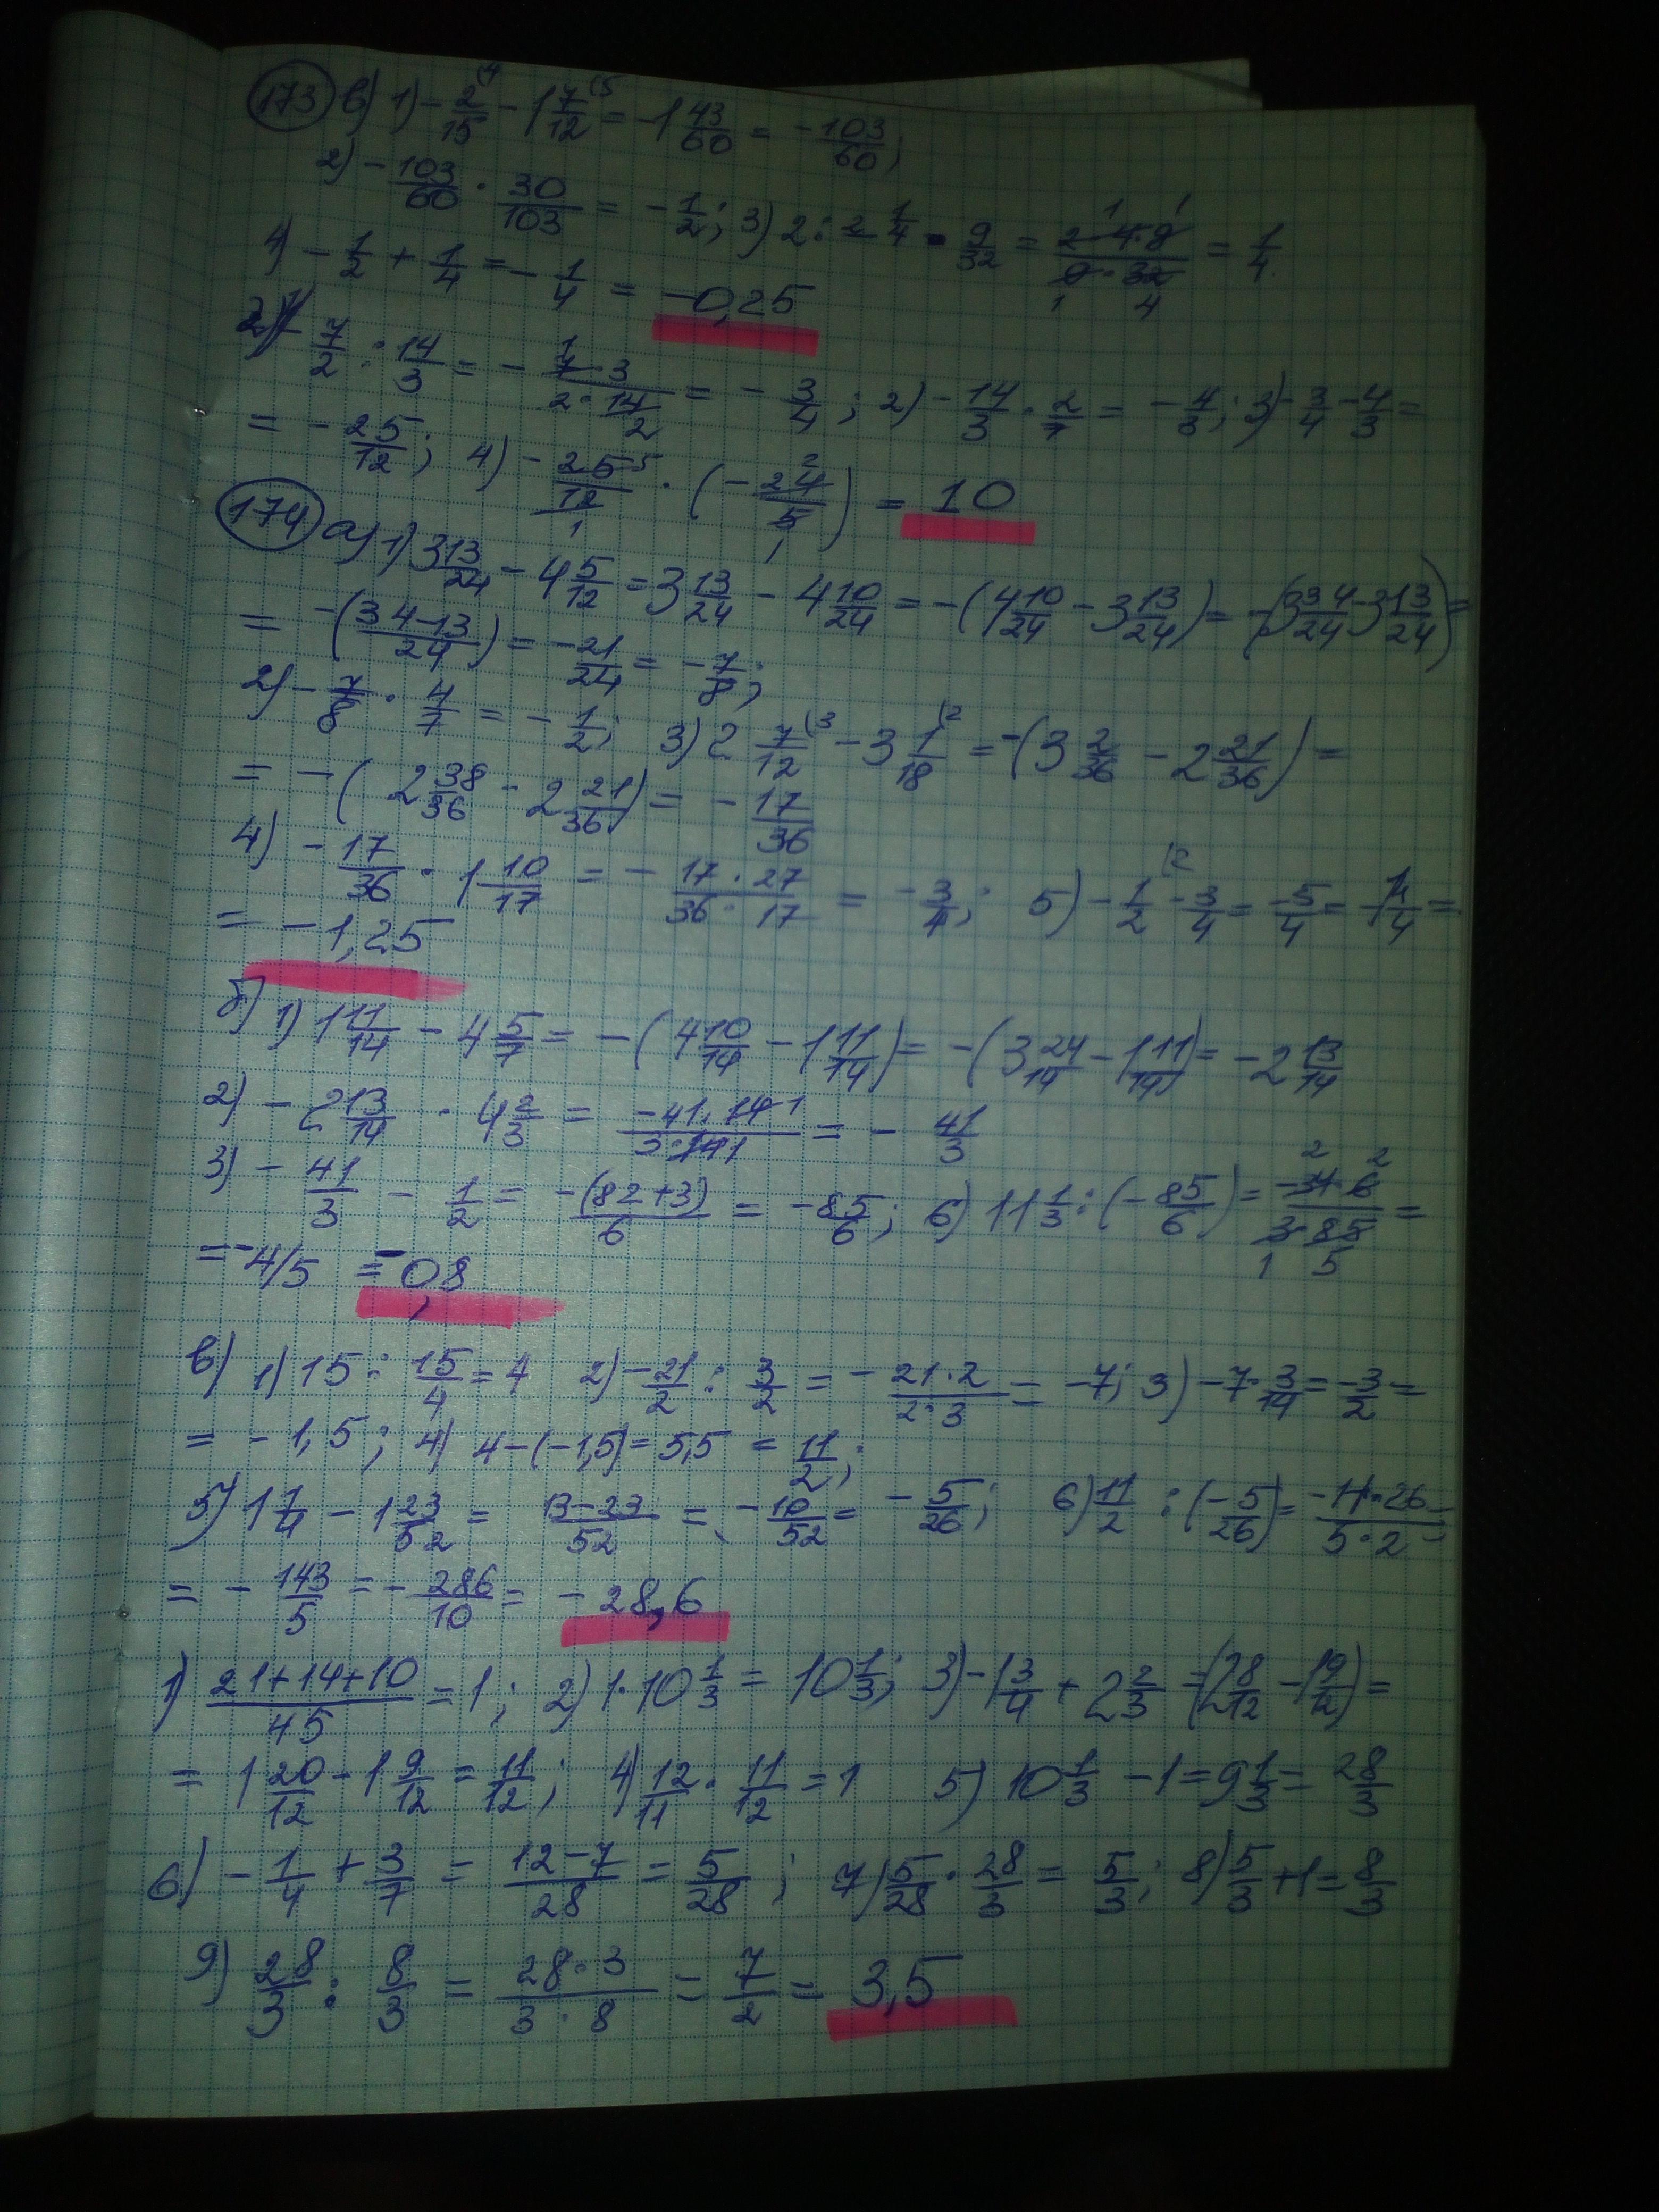 173 в) 1) -2/15 (4 - 1 7/12 (5 = -1 43/60 = -103/60;
2) -103/60 · 30/103 = -1/2; 3) 2 : 2 1/4 · 9/32 = 2·4·9/9·32 = 1/4
4) -1/2 + 1/4 = -1/4 = -0,25
-7/2 : 14/3 = -7·3/2·14 = -3/4; 2) -14/3 · 2/7 = -4/3; 3) -3/4 - 4/3 =
= -25/12; 4) -25/12 · (-24/5) = 10
174 а) 1) 3 13/24 - 4 5/12 = 3 13/24 - 4 10/24 = -(4 10/24 - 3 13/24) = -(3 34/24 - 3 13/24) =
= -(34-13/24) = -21/24 = -7/8;
2) -7/8 · 4/7 = -1/2; 3) 2 7/12 (3 - 3 1/18 (2 = -(3 2/36 - 2 21/36) =
= -(2 38/36 - 2 21/36) = -17/36
4) -17/36 · 1 10/17 = -17·27/36·17 = -3/4; 5) -1/2 (2 - 3/4 = -5/4 = -1 1/4 =
= -1,25
б) 1) 1 11/14 - 4 5/7 = -(4 10/14 - 1 11/14) = -(3 24/14 - 1 11/14) = -2 13/14
2) -2 13/14 · 4 2/3 = -41·14/3·14 = -41/3
3) -41/3 - 1/2 = -(82+3)/6 = -85/6; 6) 11 1/3 : (-85/6) = -34·6/3·85 =
= -4/5 = -0,8
в) 1) 15 : 15/4 = 4 2) -21/2 : 3/2 = -21·2/2·3 = -7; 3) -7·3/14 = -3/2 =
= -1,5; 4) 4-(-1,5) = 5,5 = 11/2;
5) 1 1/4 - 1 23/52 = 13-23/52 = -10/52 = -5/26; 6) 11/2 : (-5/26) = -11·26/5·2 =
= -143/5 = -286/10 = -28,6
1) 21+14+10/45 = 1; 2) 1·10 1/3 = 10 1/3; 3) -1 3/4 + 2 2/3 = (2 8/12 - 1 9/12) =
= 1 20/12 - 1 9/12 = 11/12; 4) 12/11 · 11/12 = 1 5) 10 1/3 - 1 = 9 1/3 = 28/3
6) -1/4 + 3/7 = 12-7/28 = 5/28; 7) 5/28 · 28/3 = 5/3; 8) 5/3 + 1 = 8/3
9) 28/3 : 8/3 = 28·3/3·8 = 7/2 = 3,5